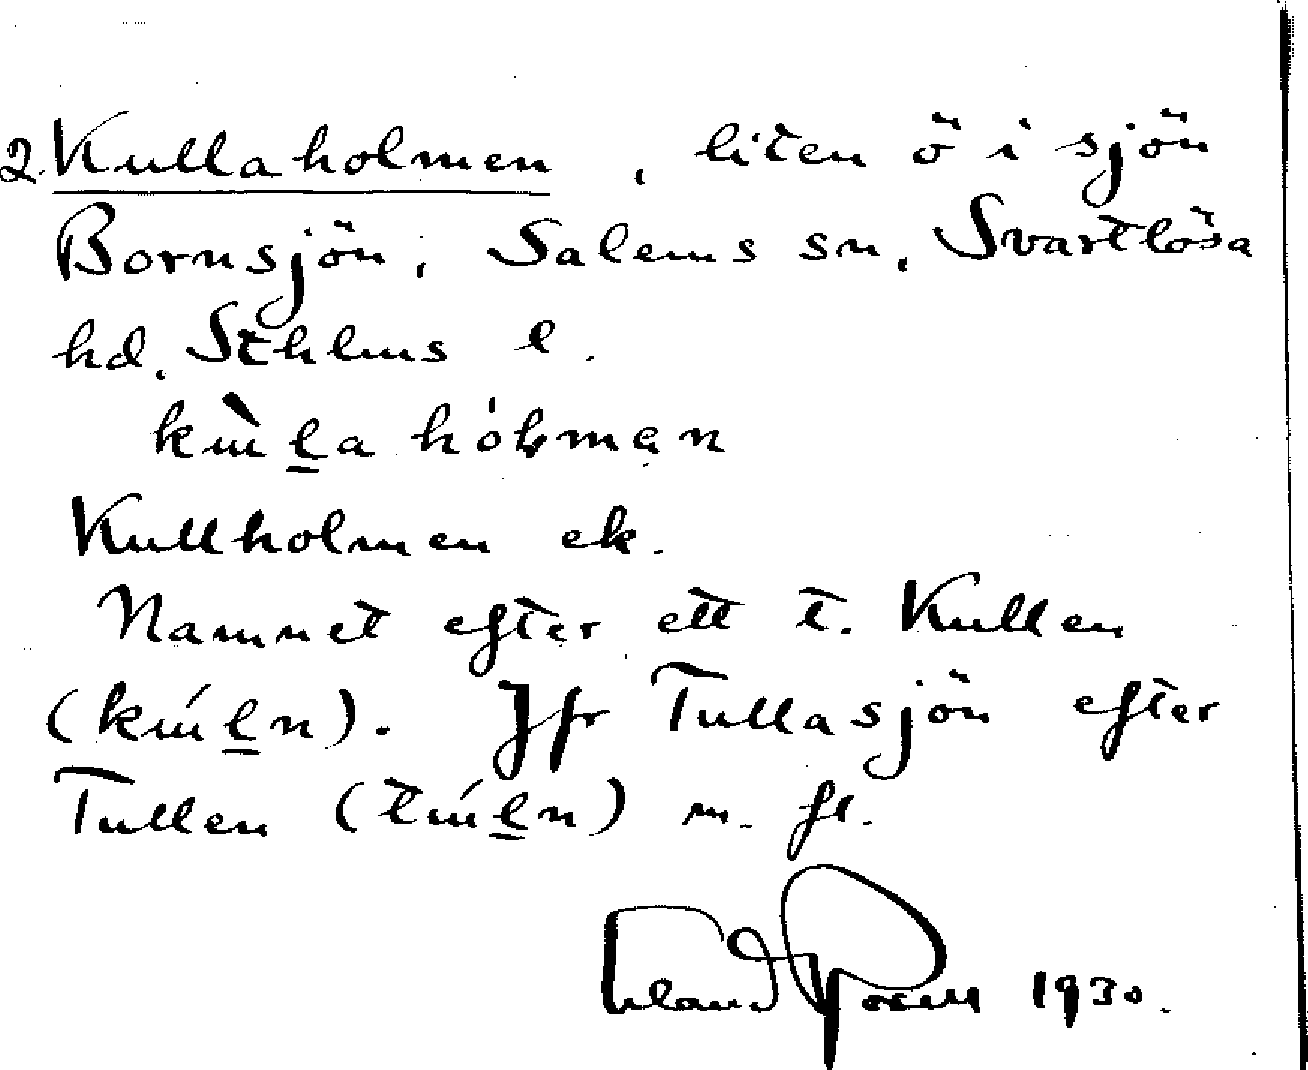 2. Kullaholmen, liten ö i sjön
Bornsjön, Salems sn, Svartlösa
hd. Sthlms l.
kùl̲a hólmən
Kullholmen ek.
Namnet efter ett t. Kullen
(kúl̲n). Jfr Tullasjön efter
Tullen (túl̲n) m. fl.
Erland Rosell 1930.